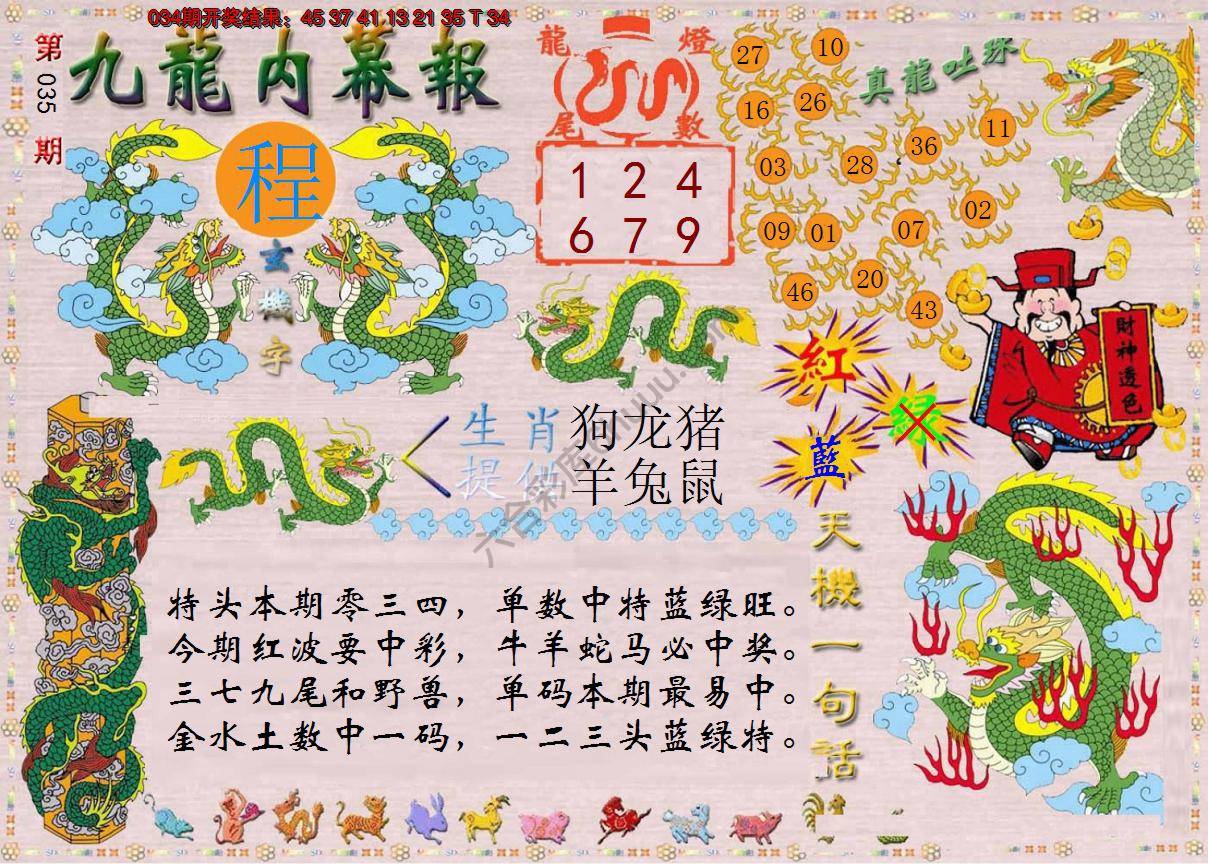 034期开奖结果：45 37 41 13 21 35 T 34
第
035
期
九龍内幕報
程
玄
機
字
龍 燈
尾 數
1 2 4
6 7 9
真龍吐珠
27 10
16 26
03 28 36 11
09 01 07 02
46 20 43
財神透色
紅
绿
藍
生肖
提供
狗龙猪
羊兔鼠
天機一句話
特头本期零三四，单数中特蓝绿旺。
今期红波要中彩，牛羊蛇马必中奖。
三七九尾和野兽，单码本期最易中。
金水土数中一码，一二三头蓝绿特。